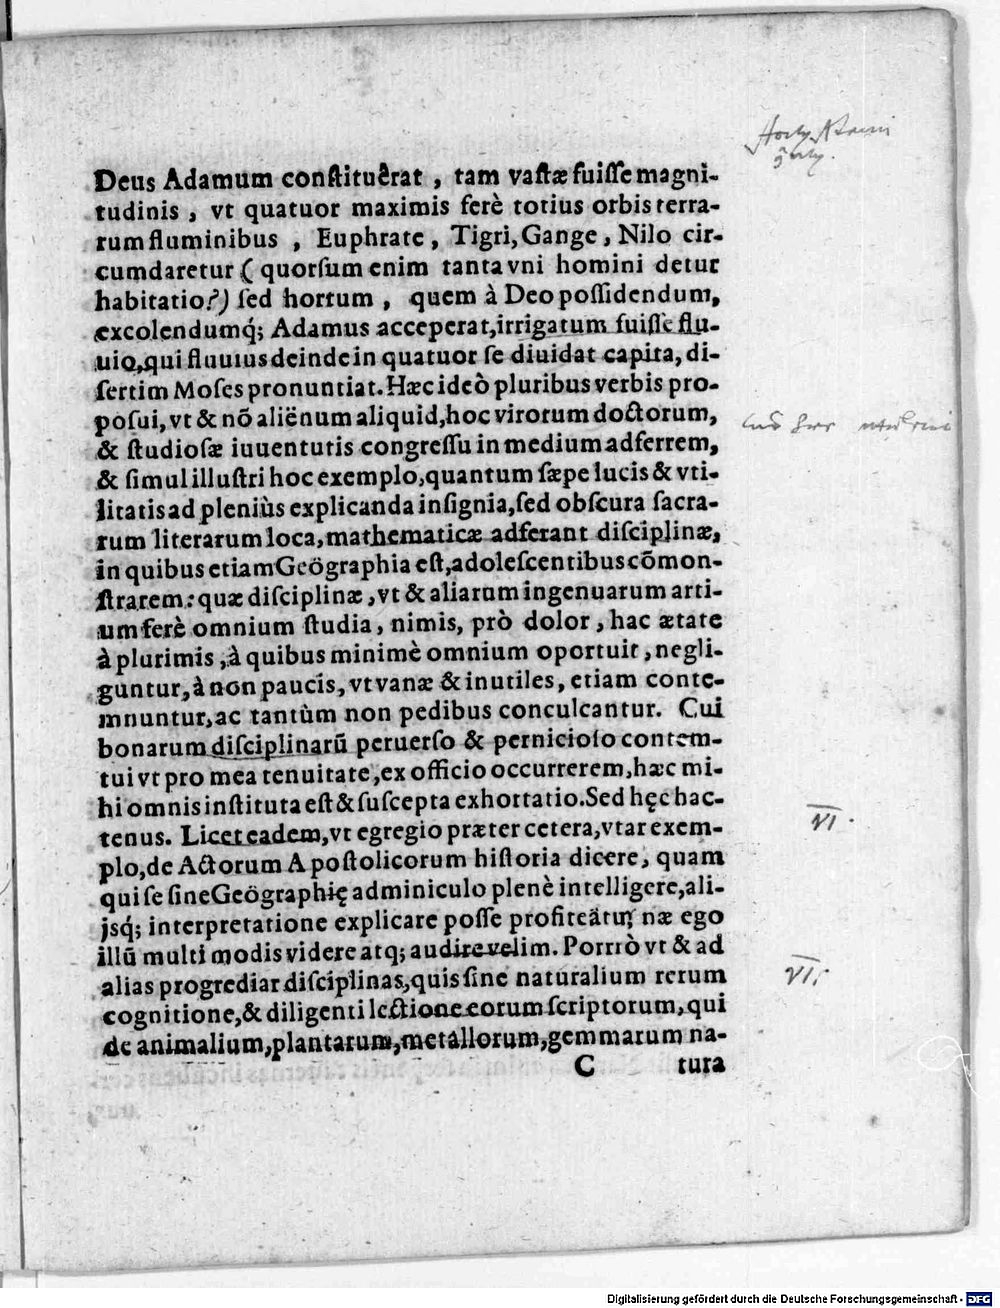 Deus Adamum conſtituêrat , tam vaſtæ fuiſſe magni-
tudinis , vt quatuor maximis ferè totius orbis terra-
rum fluminibus , Euphrate , Tigri, Gange , Nilo cir-
cumdaretur ( quorſum enim tanta vni homini detur
habitatio?) ſed hortum , quem à Deo poſſidendum,
excolendumq́; Adamus acceperat, irrigatum fuiſſe flu-
uio, qui fluuius deinde in quatuor ſe diuidat capita, di-
ſertim Moſes pronuntiat. Hæc ideò pluribus verbis pro-
poſui, vt & nõ aliënum aliquid, hoc virorum doctorum,
& ſtudioſæ iuuentutis congreſſu in medium adferrem,
& ſimul illuſtri hoc exemplo, quantum ſæpe lucis & vti-
litatis ad pleniùs explicanda inſignia, ſed obſcura ſacra-
rum literarum loca, mathematicæ adferant diſciplinæ,
in quibus etiam Geögraphia eſt, adoleſcentibus cõmon-
ſtrarem: quæ diſciplinæ , vt & aliarum ingenuarum arti-
um ferè omnium ſtudia , nimis, prò dolor , hac ætate
à plurimis , à quibus minimè omnium oportuit , negli-
guntur, à non paucis, vt vanæ & inutiles , etiam conte-
mnuntur, ac tantùm non pedibus conculcantur. Cui
bonarum diſciplinarũ peruerſo & pernicioſo contem-
tui vt pro mea tenuitate, ex officio occurrerem, hæc mi-
hi omnis inſtituta eſt & ſuſcepta exhortatio. Sed hęc hac-
tenus. Licet eadem, vt egregio præter cetera, vtar exem-
plo, de Actorum Apoſtolicorum hiſtoria dicere, quam
qui ſe ſine Geögraphię adminiculo plenè intelligere, ali-
jsq́; interpretatione explicare poſſe profiteātur, næ ego
illũ multi modis videre atq; audire velim. Porrò vt & ad
alias progrediar diſciplinas, quis ſine naturalium rerum
cognitione, & diligenti lectione eorum ſcriptorum, qui
de animalium, plantarum, metallorum, gemmarum na-
C tura
VI.
VII.
Digitalisierung gefördert durch die Deutsche Forschungsgemeinschaft - DFG